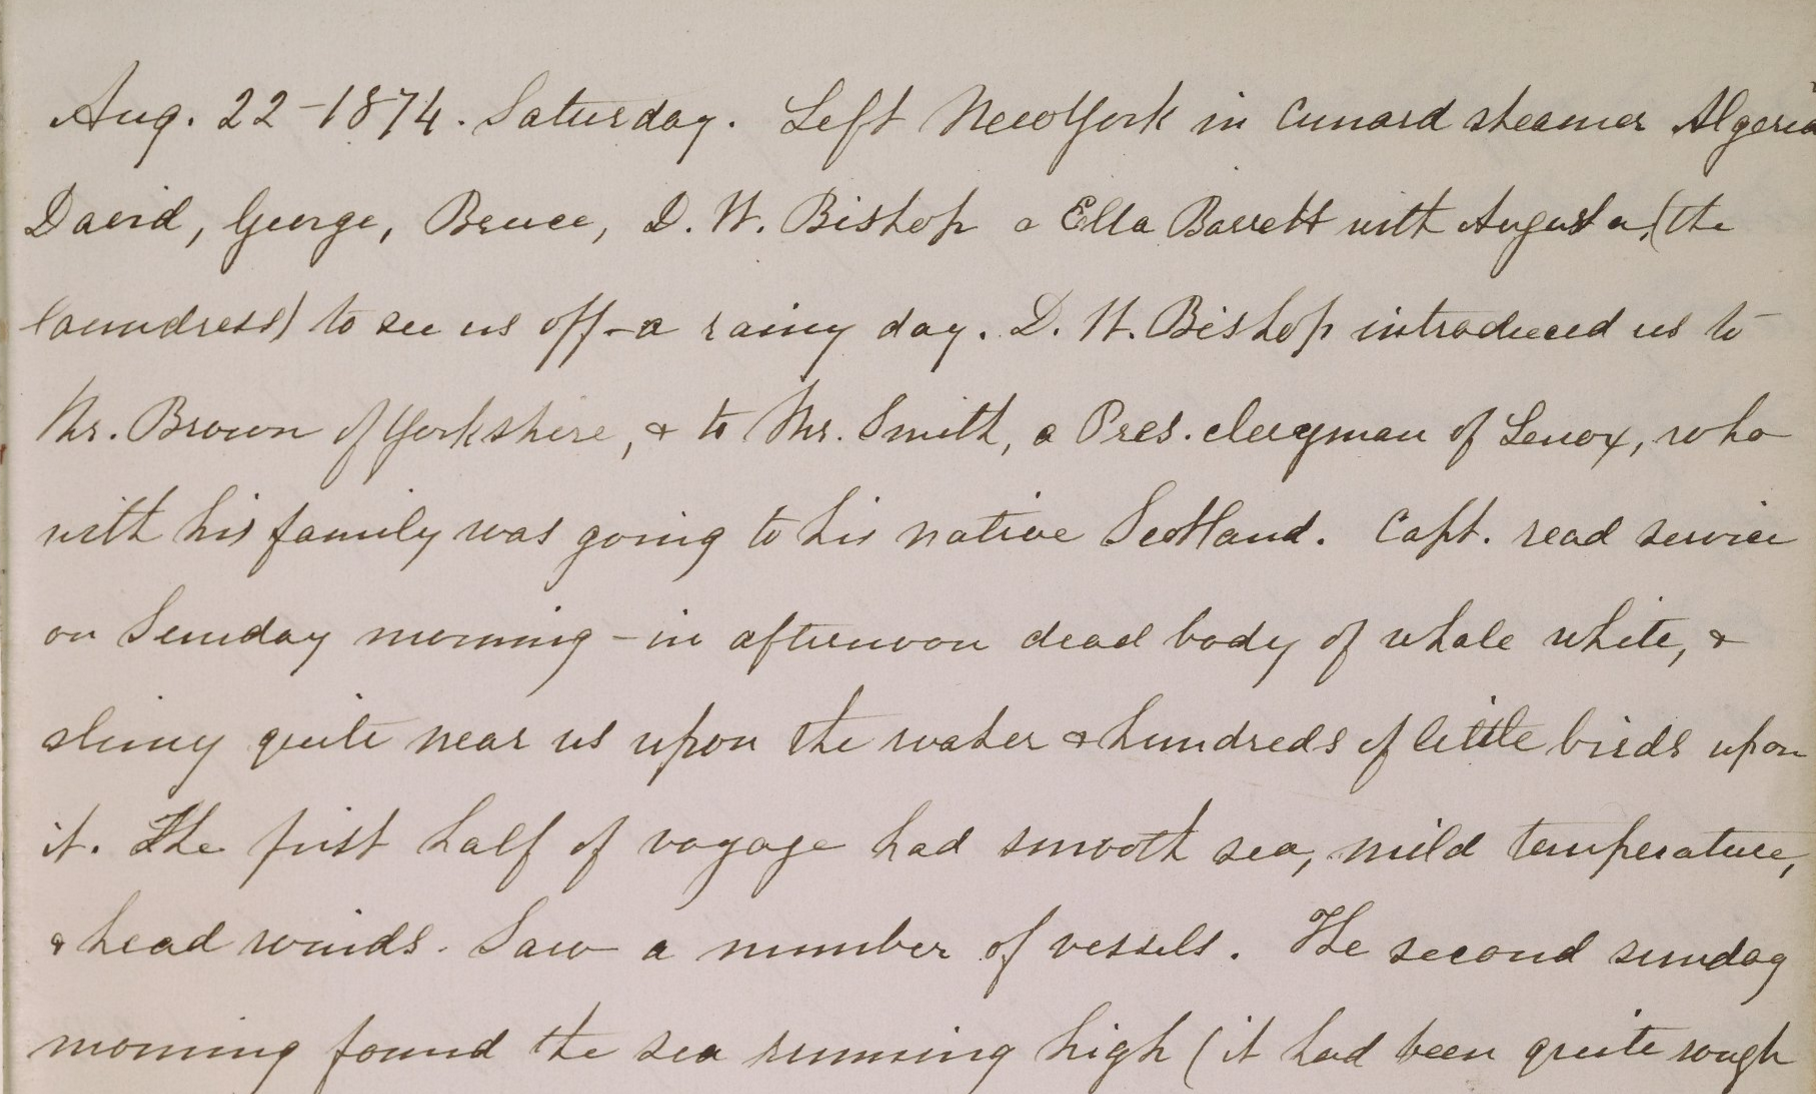 Aug. 22-1874. Saturday. Left New York in Cunard steamer Algeria
David, George, Bruce, D. W. Bishop & Ella Barrett with Augusta, (the
laundress) to see us off - a rainy day. D. W. Bishop introduced us to
Mr. Brown of Yorkshire, & to Mr. Smith, a Pres. clergyman of Lenox, who
with his family was going to his native Scotland. Capt. read service
on Sunday morning - in afternoon dead body of whale white, &
slimy quite near us upon the water & hundreds of little birds upon
it. The first half of voyage had smooth sea, mild temperature,
& head winds. Saw a number of vessels. The second sunday
morning found the sea running high (it had been quite rough